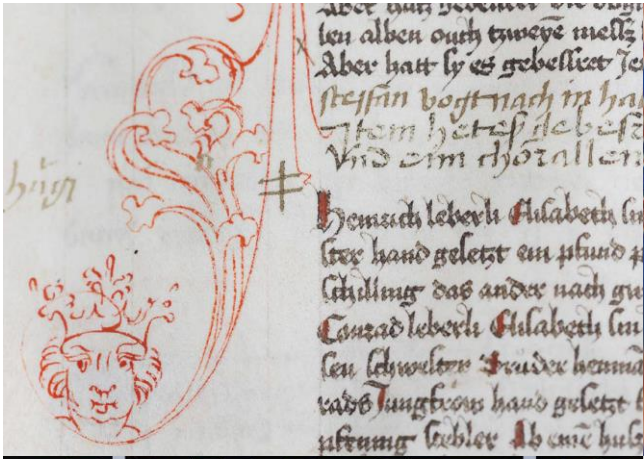 Aber hatt
len alben ouch tzweyē messz
Aber hatt sy es gebessret Je
steffan vogt nach in ha
Jtem het es gebess
Vnd eim chorallen
hügi
Heinrich leberli Elisabeth sin
ster hand gesetzt ein pfund p
schilling das ander nach gu
Conrad leberli Elisabeth sin
sen schwester Brüder henma
rads Jungfrow hand gesetzt
pfenning Ab eine hus